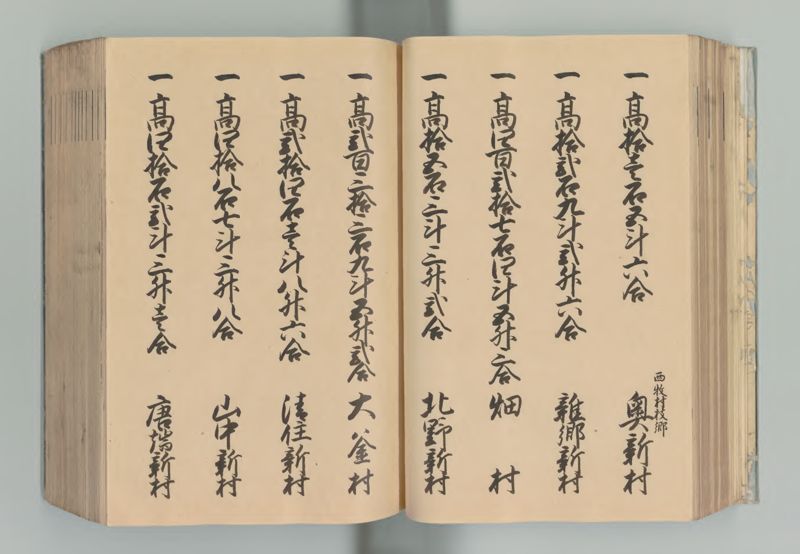 一高拾壱石五斗六合
西牧村枝郷
奥新村
一高拾弐石九斗弐升六合
雑郷新村
一高四百弐拾七石四斗五升三合
畑村
一高拾五石三斗三升弐合
北野新村
一高弐百三拾三石九斗五升弐合
大釜村
一高弐拾四石壱斗八升六合
清住新村
一高四拾八石七斗三升八合
山中新村
一高四拾石弐斗三升壱合
唐端新村